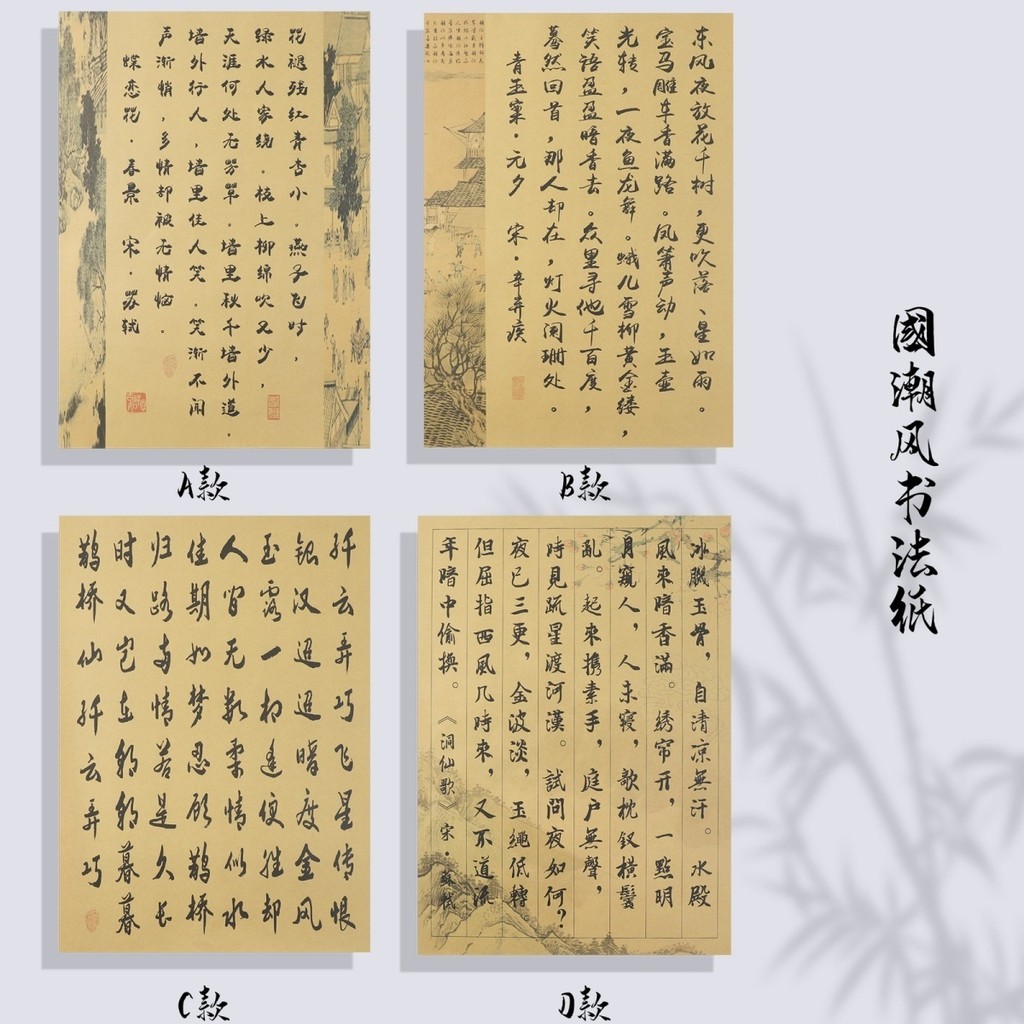 花褪残红青杏小。燕子飞时，
绿水人家绕。枝上柳绵吹又少，
天涯何处无芳草。墙里秋千墙外道。
墙外行人，墙里佳人笑。笑渐不闻
声渐悄，多情却被无情恼。
蝶恋花·春景 宋·苏轼
A款
东风夜放花千树，更吹落、星如雨。
宝马雕车香满路。凤箫声动，玉壶
光转，一夜鱼龙舞。蛾儿雪柳黄金缕，
笑语盈盈暗香去。众里寻他千百度，
蓦然回首，那人却在，灯火阑珊处。
青玉案·元夕 宋·辛弃疾
B款
國潮风书法纸
纤云弄巧飞星传恨
银汉迢迢暗度金风
玉露一相逢便胜却
人间无数柔情似水
佳期如梦忍顾鹊桥
归路两情若是久长
时又岂在朝朝暮暮
鹊桥仙纤云弄巧
C款
冰肌玉骨，自清凉無汗。水殿
風來暗香滿。绣帘开，一點明
月窺人，人未寢，歌枕釵橫鬢
亂。起來携素手，庭户無聲，
時見疏星渡河漢。試問夜如何？
夜已三更，金波淡，玉繩低轉。
但屈指西風几時來，又不道流
年暗中偷換。《洞仙歌》宋·蘇軾
D款